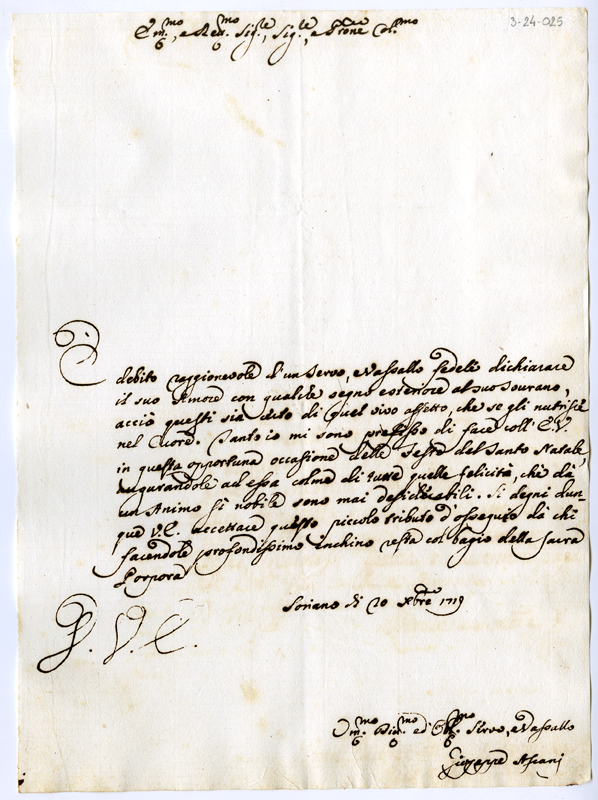 3-24-025
Em.mo, e Reu.mo Sig.re, Sig.re, e Prone Col.mo
È debito raggionevole d'un Servo, e Vassallo fedele dichiarare
il suo Amore con qualche segno esteriore al suo Sourano,
acciò questi sia certo di quel vivo affetto, che se gli nutrisce
nel Cuore. Tanto io mi sono prefisso di fare coll'E.V.
in questa opportuna occasione delle Feste del Santo Natale,
augurandole ad essa colme di tutte quelle felicità, che dà
un Animo sì nobile sono mai desiderabili. Si degni dun-
que V.E. accettare questo piccolo tributo d'ossequio dà chi
facendole profondissimo inchino resta col bagio della sacra
Porpora
Soriano li 20 Xbre 1719
D. V. E.
Um.mo Diu.mo ed Obl.mo Servo, e Vassallo
Giuseppe Ascani